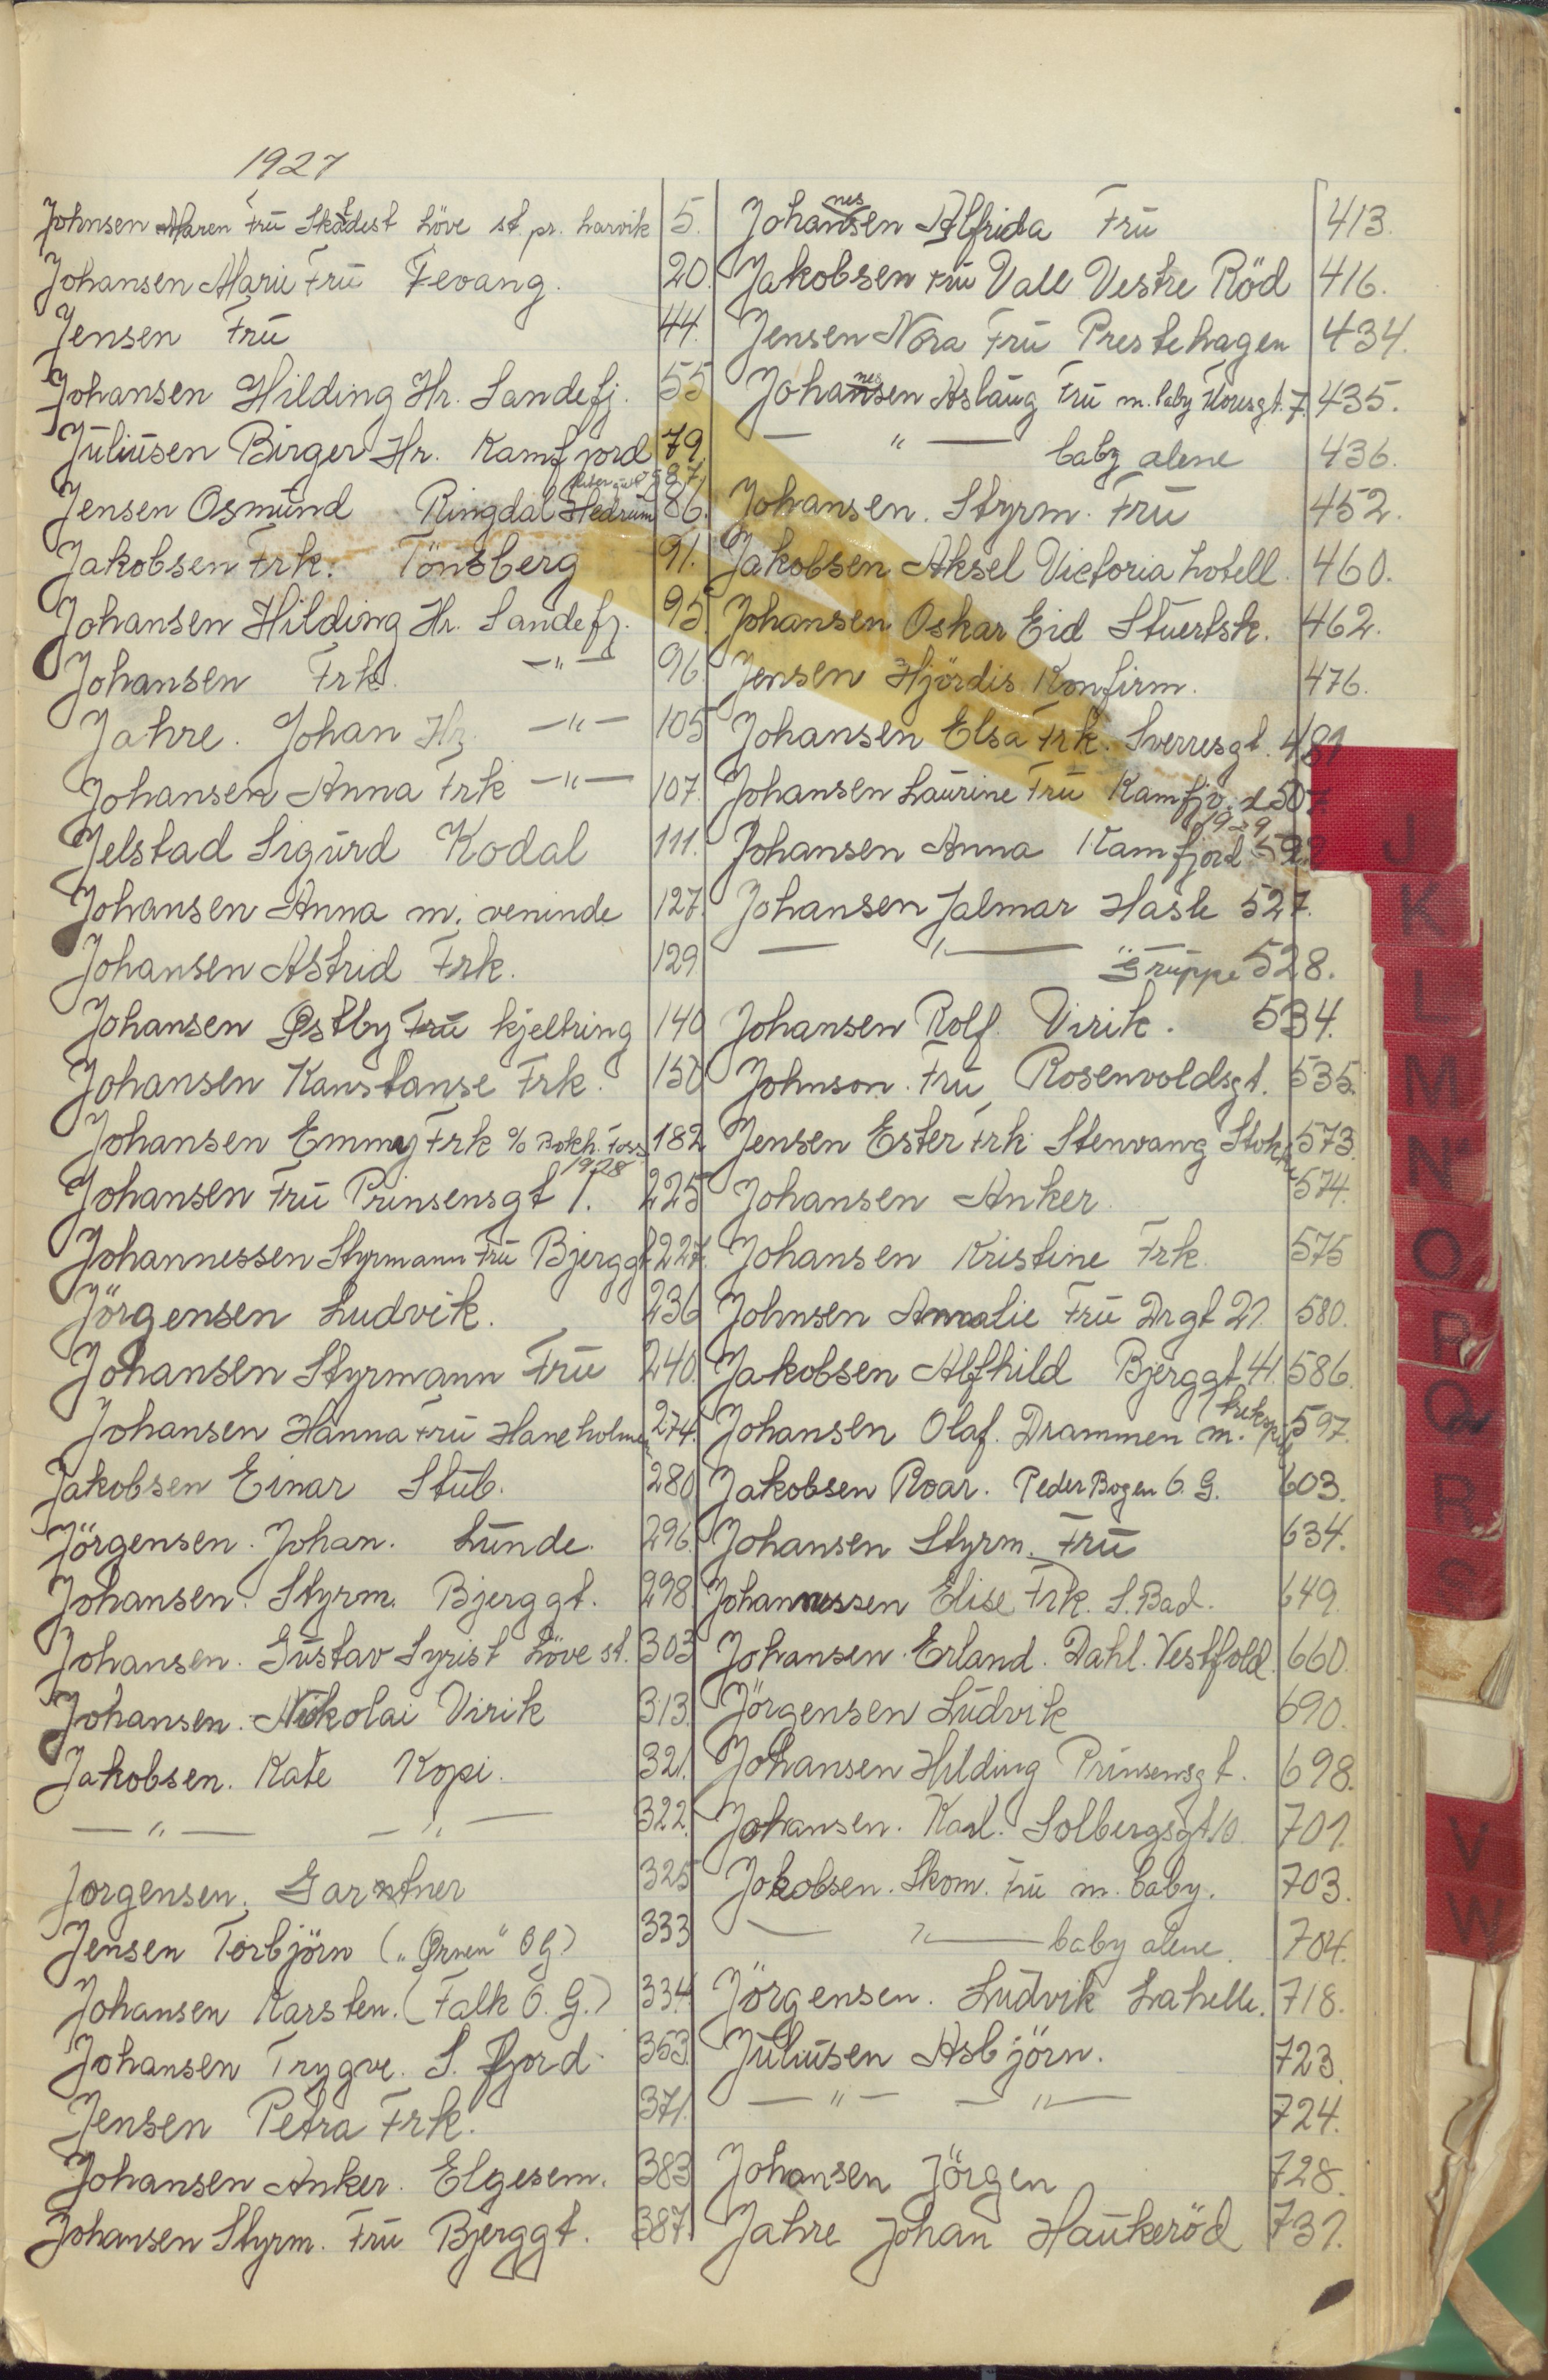 1927
Johnsen Maren Frü Skådest Löve st. pr. Larvik 5.
Johansen Marie Frü Fevang. 20.
Jensen Frü 44.
Johansen Hilding Hr. Sandefj. 55
Juliüsen Birger Hr. Kamfjord 79.
587
Jensen Osmünd Ringdal Hedrüm 86.
Jakobsen Frk. Tönsberg 91.
Johansen Hilding Hr. Sandefj. 95.
Johansen Frk. —"— 96.
Jahre. Johan Hr. —"— 105
Johansen Anna Frk —"— 107.
Jelstad Sigürd Kodal 111.
Johansen Anna m. veninde 127.
Johansen Astrid Frk. 129
Johansen Østby Frü kjeltring 140
Johansen Kanstanse Frk. 150
Johansen Emmy Frk % Bokh. Foss 182
1928
Johansen Frü Prinsensgt 1. 225
Johannessen Styrmann Frü Bjerggt 227.
Jörgensen Ludvik. 236
Johansen Styrmann Frü 240.
Johansen Hanna Frü Haneholmen 274.
Jakobsen Einar Stüb. 280
Jörgensen. Johan. Lünde. 296.
Johansen. Styrm. Bjerggt. 298.
Johansen. Güstav Syrist Löve st. 303
Johansen. Nikolai Virik 313.
Jakobsen. Kate Kopi. 321.
—"— —"— 322.
Jorgensen. Gartner 325
Jensen Torbjörn („Ørnen" O G) 333
Johansen Karsten. (Falk O. G.) 334
Johansen Trygve. S. fjord. 353.
Jensen Petra Frk. 371.
Johansen Anker. Elgesem. 383
Johansen Styrm. Frü Bjerggt. 387.
nes
Johansen Alfrida Frü 413.
Jakobsen Frü Vall Vestre Röd 416.
Jensen Nora Frü Prestehagen 434.
nes
Johansen Aslaüg Frü m. baby Thoresgt. 7. 435.
—"— baby alene 436.
Johansen. Styrm. Frü 452.
Jakobsen Aksel Victoria hotell. 460.
Johansen Oskar Eid Stuertsk. 462.
Jensen Hjördis Konfirm. 476.
Johansen Elsa Frk. Sverresgt. 481
Johansen Laürine Frü Kamfjord 507
1929
Johansen Anna Kamfjord
Johansen Jalmar Hasle 527.
—"— Grüppe 528.
Johansen Rolf. Virik. 534.
Johnson. Frü Rosenvoldsgt. 535.
Jensen Ester Frk Stenvang Stokke 573.
Johansen Anker. 574.
Johansen Kristine Frk. 575
Johnsen Amalie Frü Drgt 21 580.
Jakobsen Alfhild Bjerggt. 41. 586.
Johansen Olaf. Drammen m. trekspil 597.
Jakobsen Roar. Peder Bogen O. G. 603.
Johansen Styrm. Frü 634.
Johannessen Elise Frk. S. Bad. 649.
Johansen. Erland. Dahl. Vestfold. 660.
Jörgensen Lüdvik 690.
Johansen Hilding Prinsensgt. 698.
Johansen. Karl. Solbergsgt 10. 701.
Jakobsen. Skom. Frü m. baby. 703.
—"— baby alene. 704.
Jörgensen. Lüdvik Lahelle. 718.
Juliüsen Asbjörn. 723.
—"— —"— 724.
Johansen Jörgen 728.
Jahre Johan Haükeröd 731.
J
K
L
M
N
O
P
Q
R
S
V
W